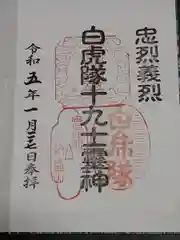 忠烈義烈
白虎隊十九士靈神
白虎隊
令和五年一月三七日参拝